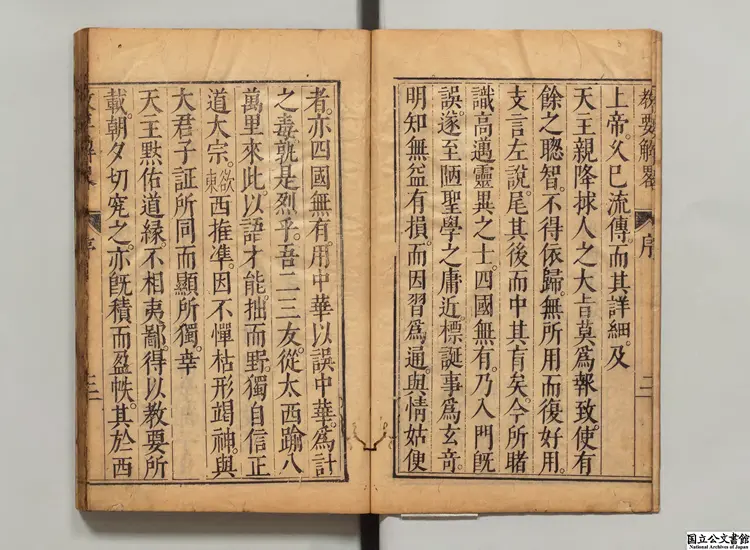 教要解畧 序 二
上帝。乆已流傳。而其詳細。及
天主親降捄人之大旨。莫爲報致。使有
餘之聰智。不得依歸。無所用而復好用。
支言左說。尾其後而中其肓矣。今所睹
識高邁靈異之士。四國無有。乃入門旣
誤。遂至陋聖學之庸近。標誕事爲玄竒。
明知無益有損。而因習爲通。與情姑便
者。亦四國無有。用中華以誤中華。爲計
之毒孰是烈乎。吾二三友。從太西踰八
萬里來此以語才能。拙而野。獨自信正
道大宗。欲東西推準。因不憚枯形竭神。與
大君子証所同而顯所獨。幸
天主黙佑道緣。不相夷鄙。得以教要所
載。朝夕切究之。亦旣積而盈帙。其於西
序 三
国立公文書館
National Archives of Japan